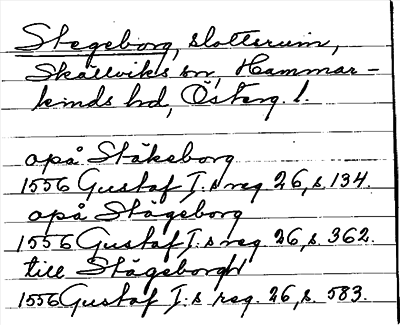 Stegeborg, slottsruin,
Skällviks sn, Hammar-
kinds hd, Österg. l.
opå Stäkeborg
1556 Gustaf I:s reg. 26, s. 134.
opå Stägeborg
1556 Gustaf I:s reg. 26, s. 362.
till Stägeborgh
1556 Gustaf I:s reg. 26, s. 583.